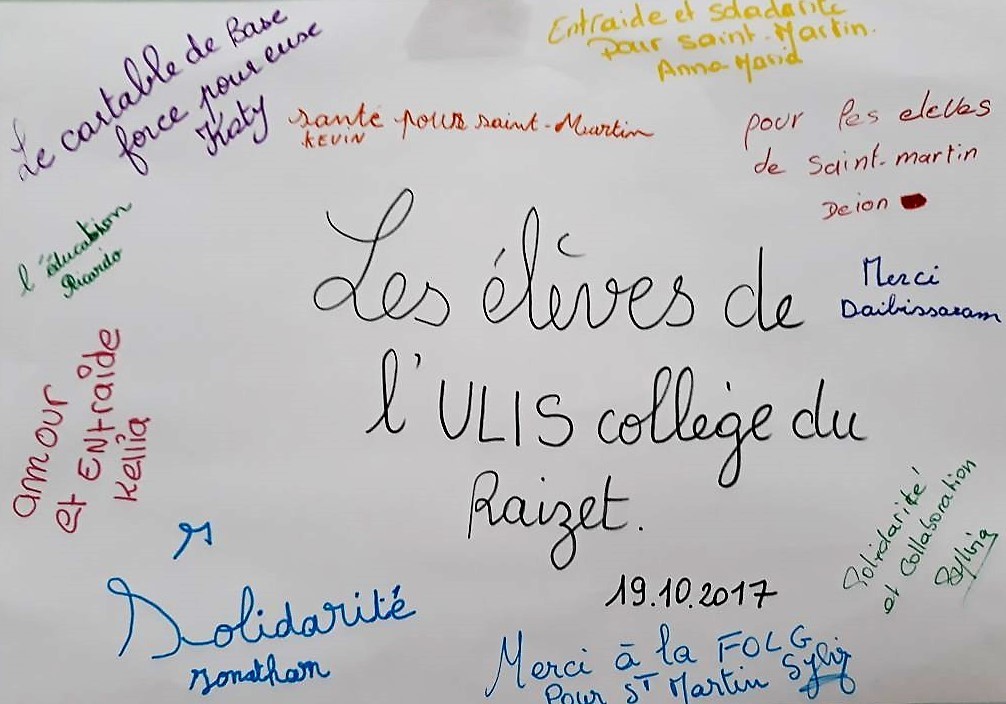 Le cartable de Base
force pour euse
Katy
Entraide et Soladarité
Pour Saint-Martin.
Anna-Maria
santé pour saint-Martin
KEVIN
pour les eleves
de Saint-martin
Deion
l'éducation
Ricardo
Merci
Daibissaram
Les élèves de
l'ULIS collège du
Raizet.
19.10.2017
amour
et ENtraide
Kellia
Solidarité
et Collaboration
Sylvia
Solidarité
Jonatham
Merci à la FOLG
Pour ST Martin Sylviz